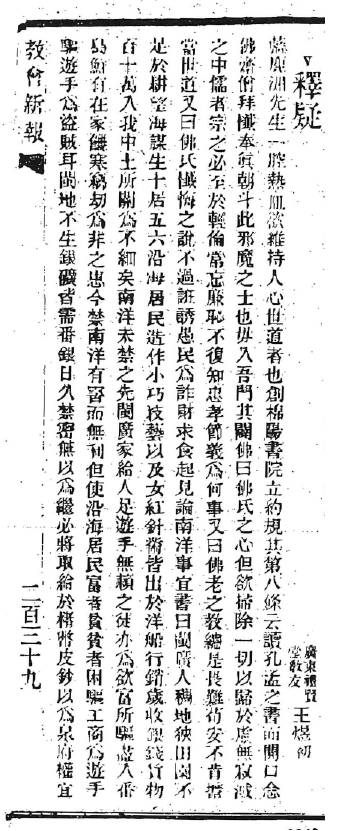 釋疑
廣東禮賢
堂教友 王煜初
藍鹿洲先生一腔熱血欲維持人心世道者也創棉陽書院立約規其第八條云讀孔孟之書而開口念
佛齋僧拜懺奉眞朝斗此邪魔之士也毋入吾門其闢佛曰佛氏之心但欲掃除一切以歸於虛無寂滅
之中儒者宗之必至於輕倫常忘廉恥不復知忠孝節義爲何事又曰佛老之教總是畏難苟安不肯擔
當世道又曰佛氏懺悔之說不過誑誘愚民爲詐財求食起見論南洋事宜書曰閩廣人稠地狹田園不
足於耕望海謀生十居五六沿海居民造作小巧技藝以及女紅針黹皆出於洋船行銷歲收銀錢貨物
百十萬入我中土所關爲不細矣南洋未禁之先閩廣家給人足遊手無賴之徒亦爲欲富所驅盡入番
島鮮有在家饑寒竊劫爲非之患今禁南洋有害而無利但使沿海居民富者貧貧者困驅工商爲遊手
驅遊手爲盜賊耳閩地不生銀礦皆需番銀日久禁密無以爲繼必將取給於楮幣皮鈔以爲泉府權宜
教會新報
二百三十九